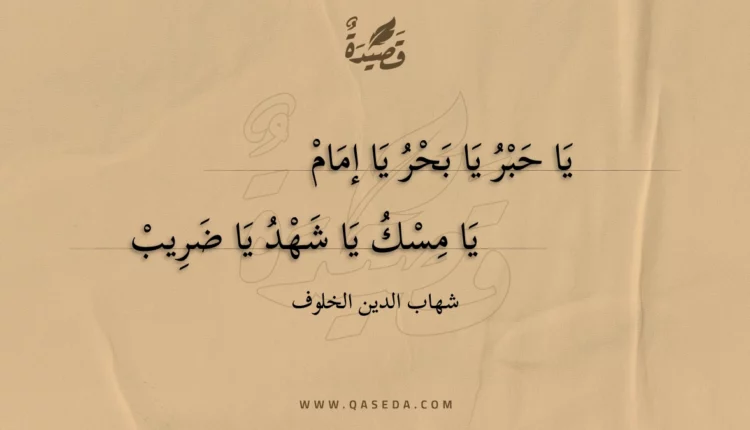 قَصِيدَةٌ
يَا حَبْرُ يَا بَحْرُ يَا إمَامْ
يَا مِسْكُ يَا شَهْدُ يَا ضَرِيبْ
شهاب الدين الخلوف
WWW.QASEDA.COM